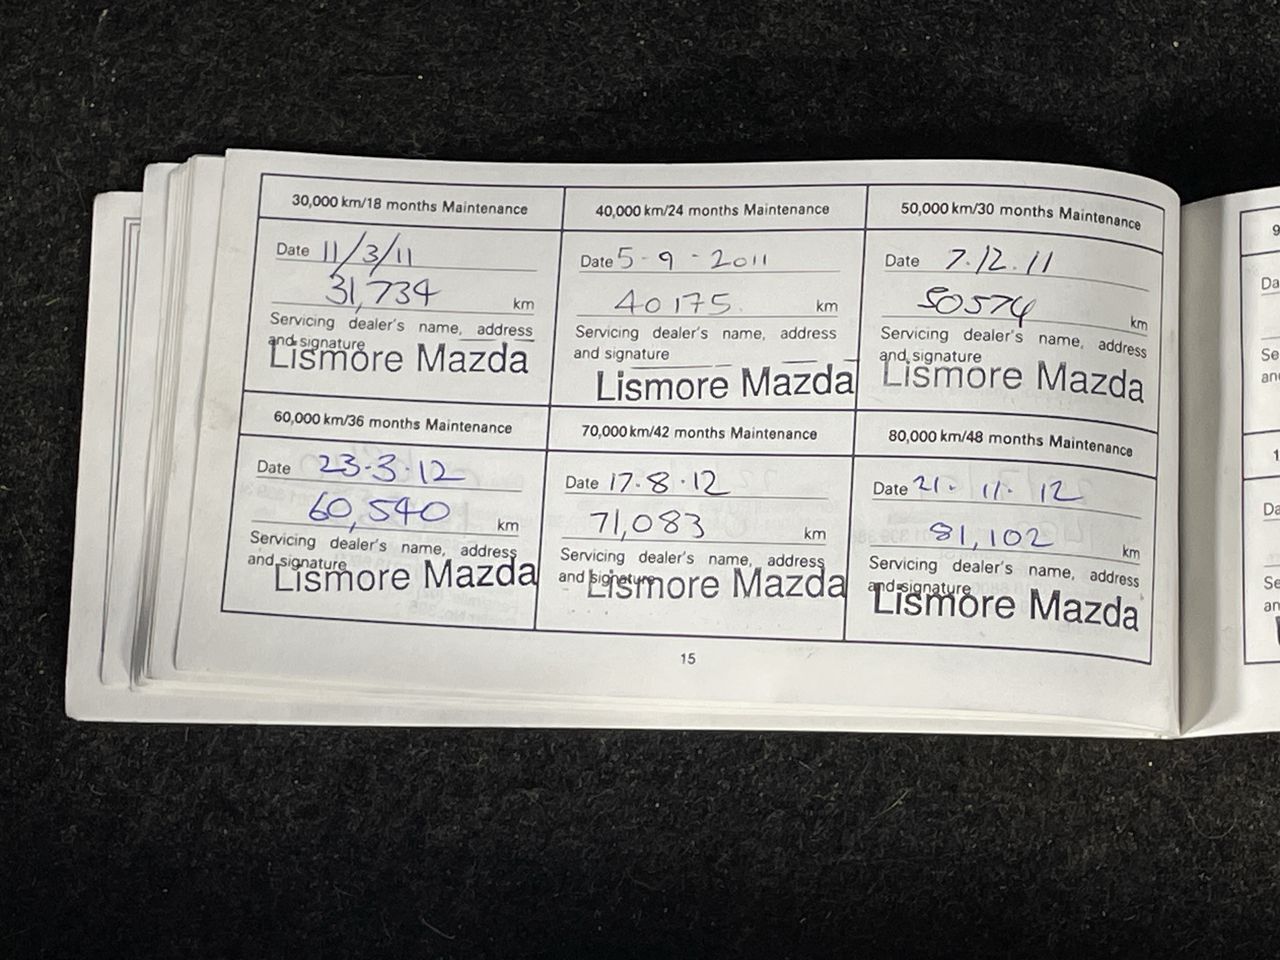 30,000 km/18 months Maintenance
Date 11/3/11
31,734 km
Servicing dealer's name, address
and signature
Lismore Mazda
40,000 km/24 months Maintenance
Date 5-9-2011
40175 km
Servicing dealer's name, address
and signature
Lismore Mazda
50,000 km/30 months Maintenance
Date 7.12.11
50574 km
Servicing dealer's name, address
and signature
Lismore Mazda
60,000 km/36 months Maintenance
Date 23.3.12
60,540 km
Servicing dealer's name, address
and signature
Lismore Mazda
70,000 km/42 months Maintenance
Date 17.8.12
71,083 km
Servicing dealer's name, address
and signature
Lismore Mazda
80,000 km/48 months Maintenance
Date 21.11.12
81,102 km
Servicing dealer's name, address
and signature
Lismore Mazda
15